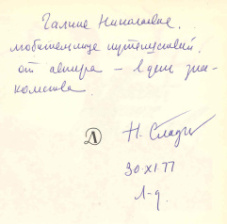 Галине Николаевне,
любительнице путешествий,
от автора – в день зна-
комства.
Л
Н. Слад
30·XI 77
Л-д.